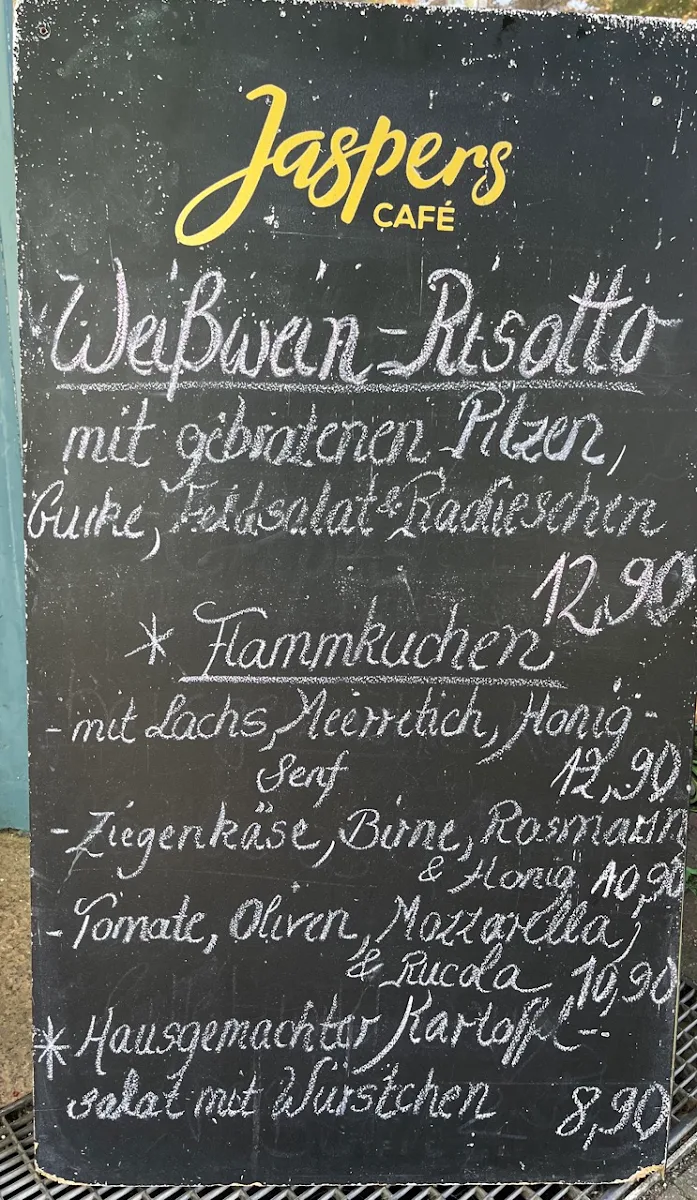 Jaspers
CAFÉ
Weißwein-Risotto
mit gebratenen Pilzen,
Gurke, Feldsalat & Radieschen
12,90
* Flammkuchen
- mit Lachs, Meerrettich, Honig-
Senf 12,90
- Ziegenkäse, Birne, Rosmarin
& Honig 10,90
- Tomate, Oliven, Mozzarella,
& Rucola 10,90
* Hausgemachter Kartoffel-
salat mit Würstchen 8,90